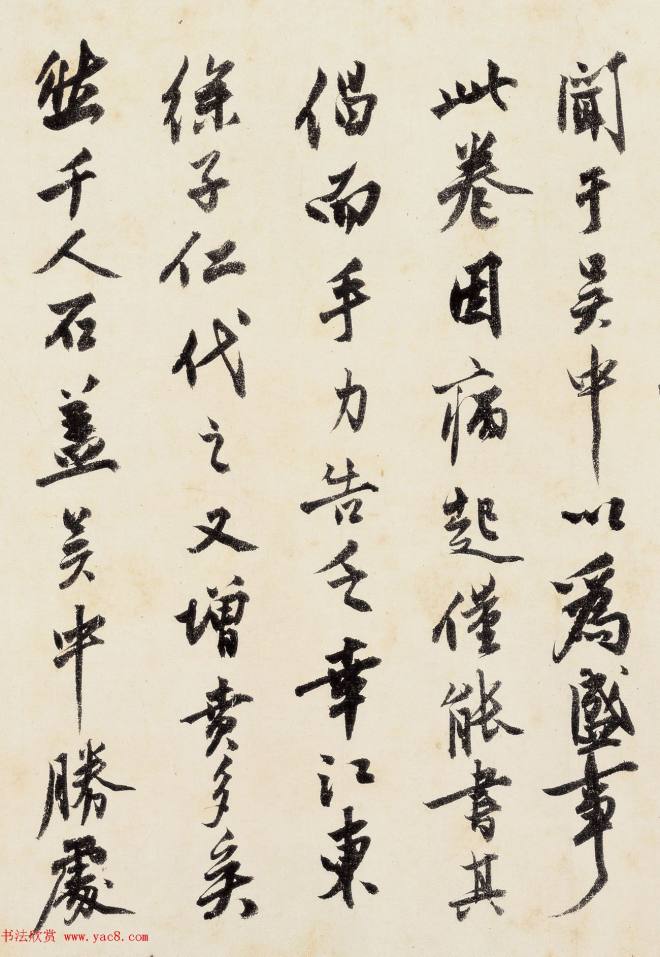 聞于吳中以爲盛事
此卷因病起僅能書其
倡而手力告乏幸江東
徐子仁代之又增賁多矣
然千人石蓋吴中勝處
书法欣赏 www.yac8.com